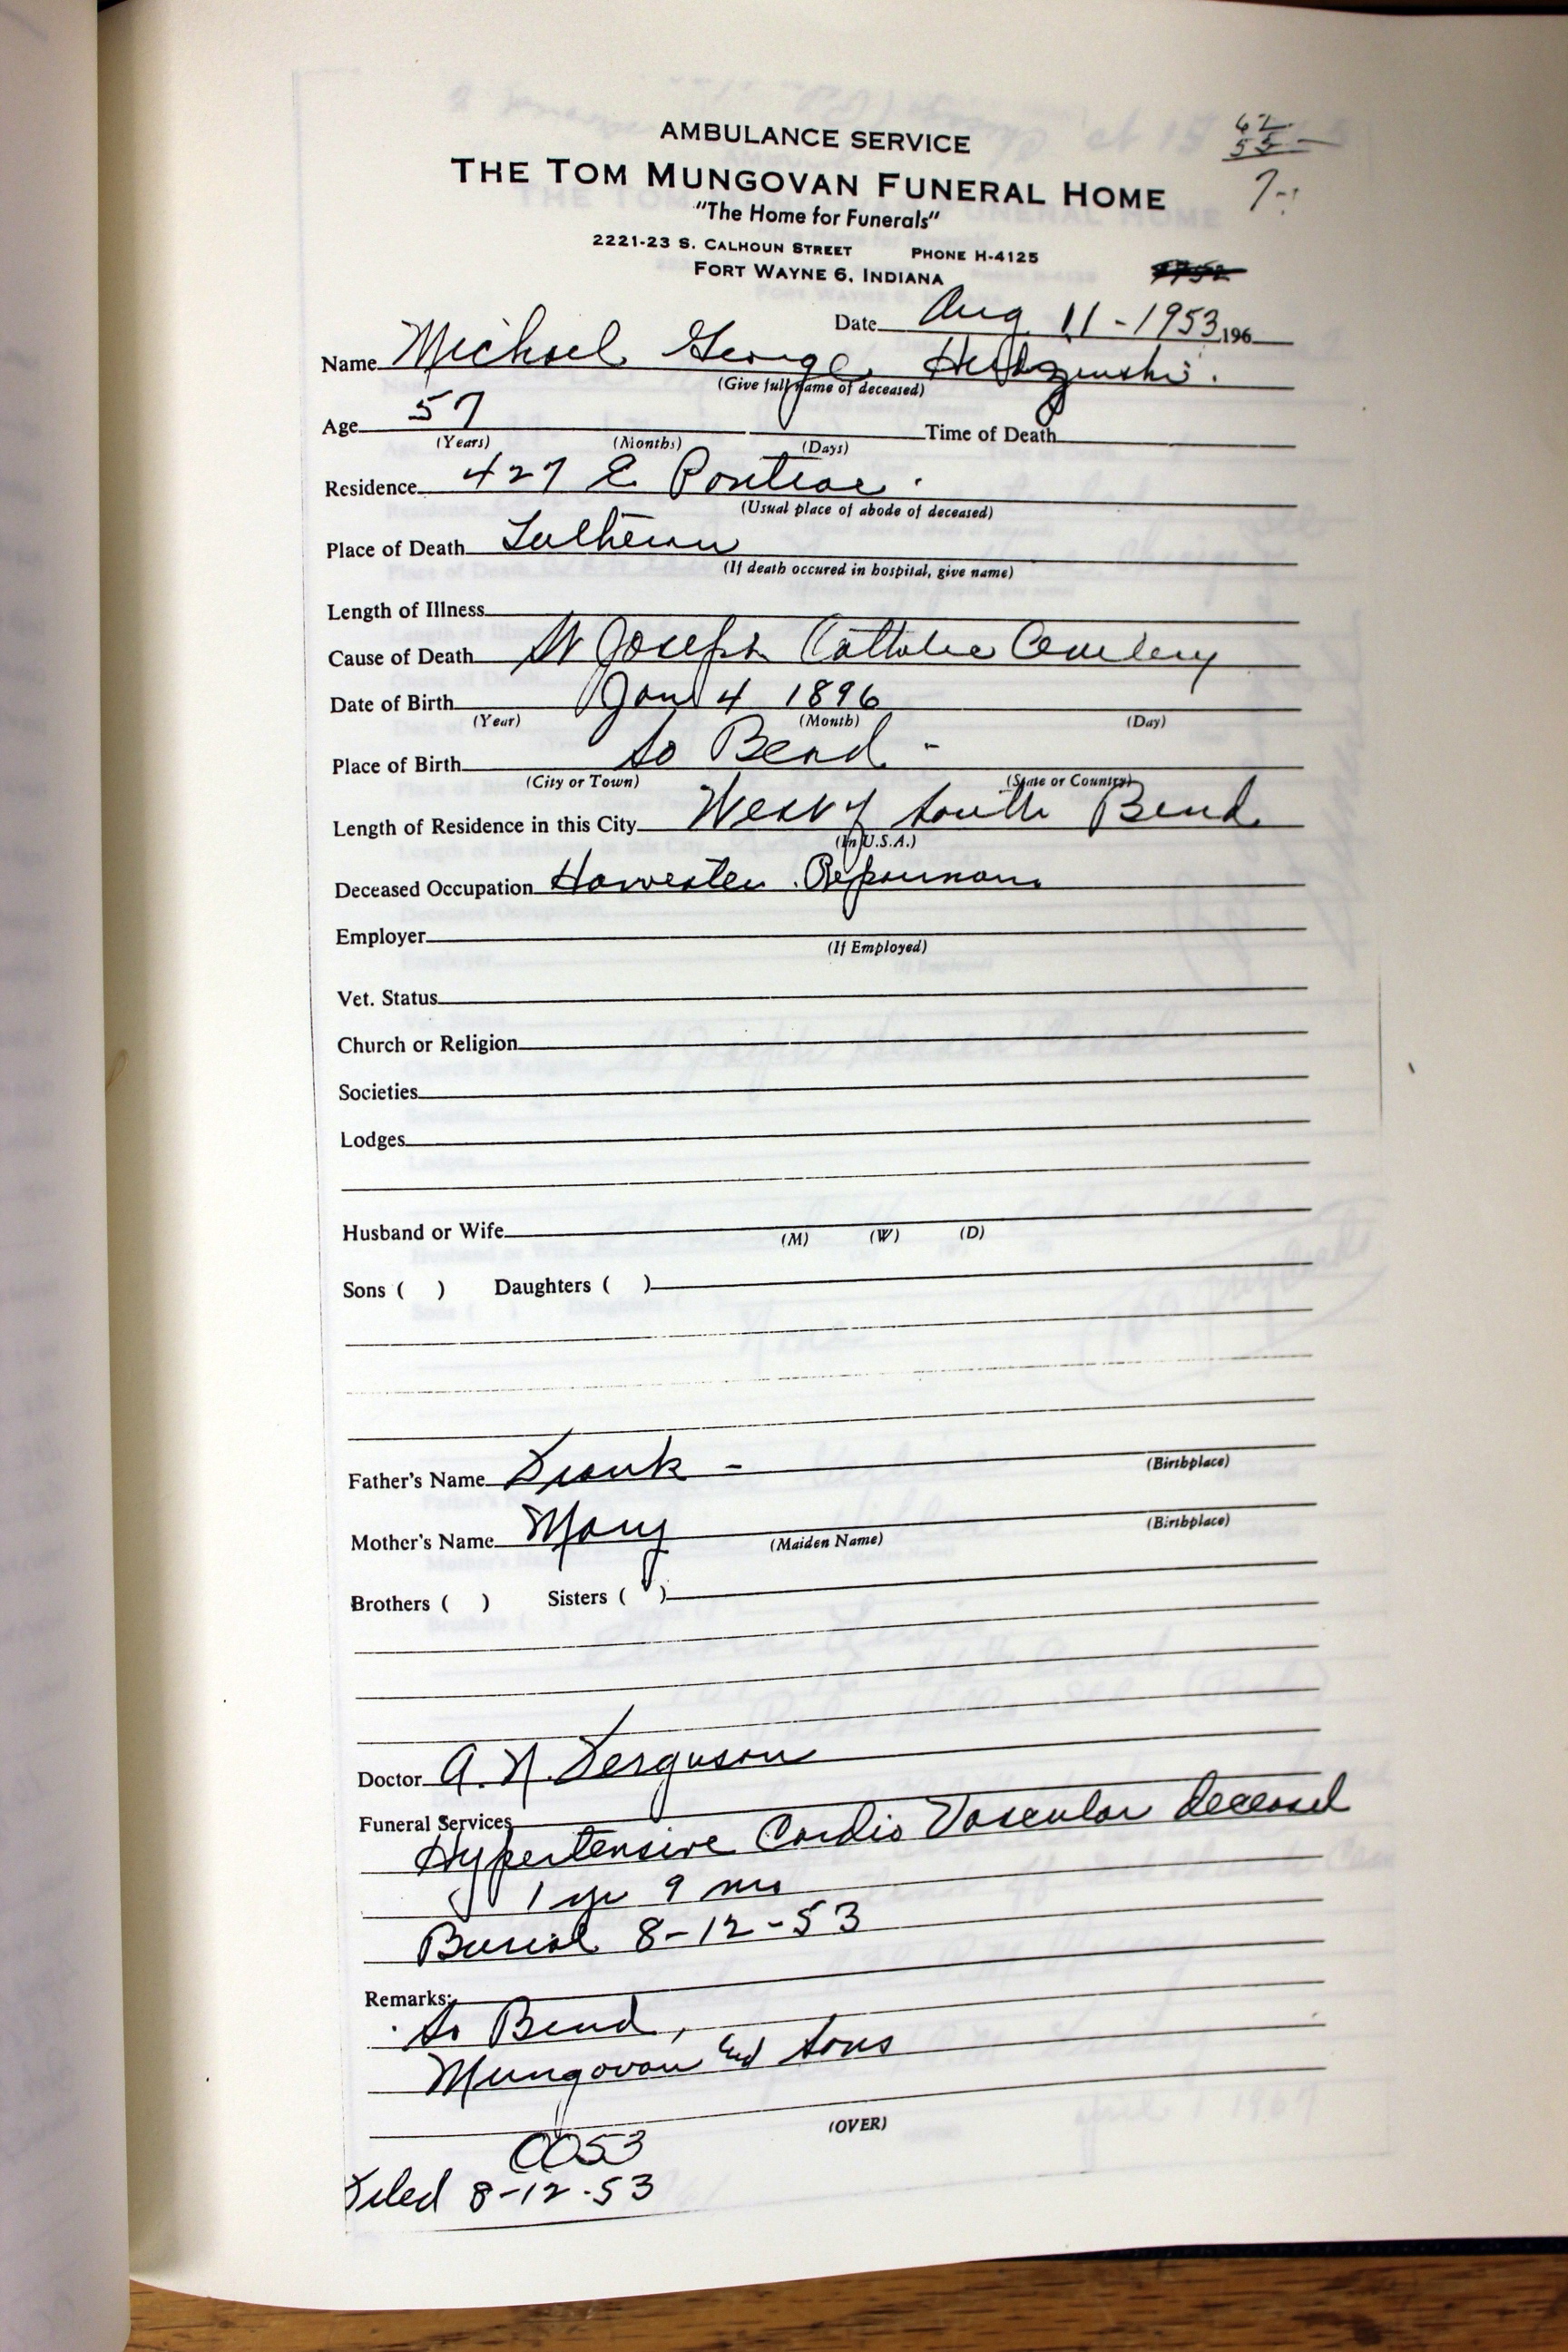 AMBULANCE SERVICE
62
55
7-
THE TOM MUNGOVAN FUNERAL HOME
"The Home for Funerals"
2221-23 S. CALHOUN STREET PHONE H-4125
FORT WAYNE 6, INDIANA
Date Aug 11-1953, 196
Name Michael George
(Give full name of deceased)
Age 57 Time of Death
(Years) (Months) (Days)
Residence 427 E Pontiac
(Usual place of abode of deceased)
Place of Death Lutheran
(If death occured in hospital, give name)
Length of Illness
Cause of Death St Joseph Catholic Cemetery
Date of Birth Jan 4 1896
(Year) (Month) (Day)
Place of Birth So Bend -
(City or Town) (State or Country)
Length of Residence in this City West of South Bend
(In U.S.A.)
Deceased Occupation Harvester Repairman
Employer
(If Employed)
Vet. Status
Church or Religion
Societies
Lodges
Husband or Wife
(M) (W) (D)
Sons ( ) Daughters ( )
Father's Name Frank -
(Birthplace)
Mother's Name Mary
(Maiden Name) (Birthplace)
Brothers ( ) Sisters ( )
Doctor A. N. Ferguson
Funeral Services
Hypertensive Cardio Vascular deceased
1 yr 9 mo
Burial 8-12-53
Remarks:
So Bend,
Mungovan and Sons
(OVER)
Filed 8-12-53